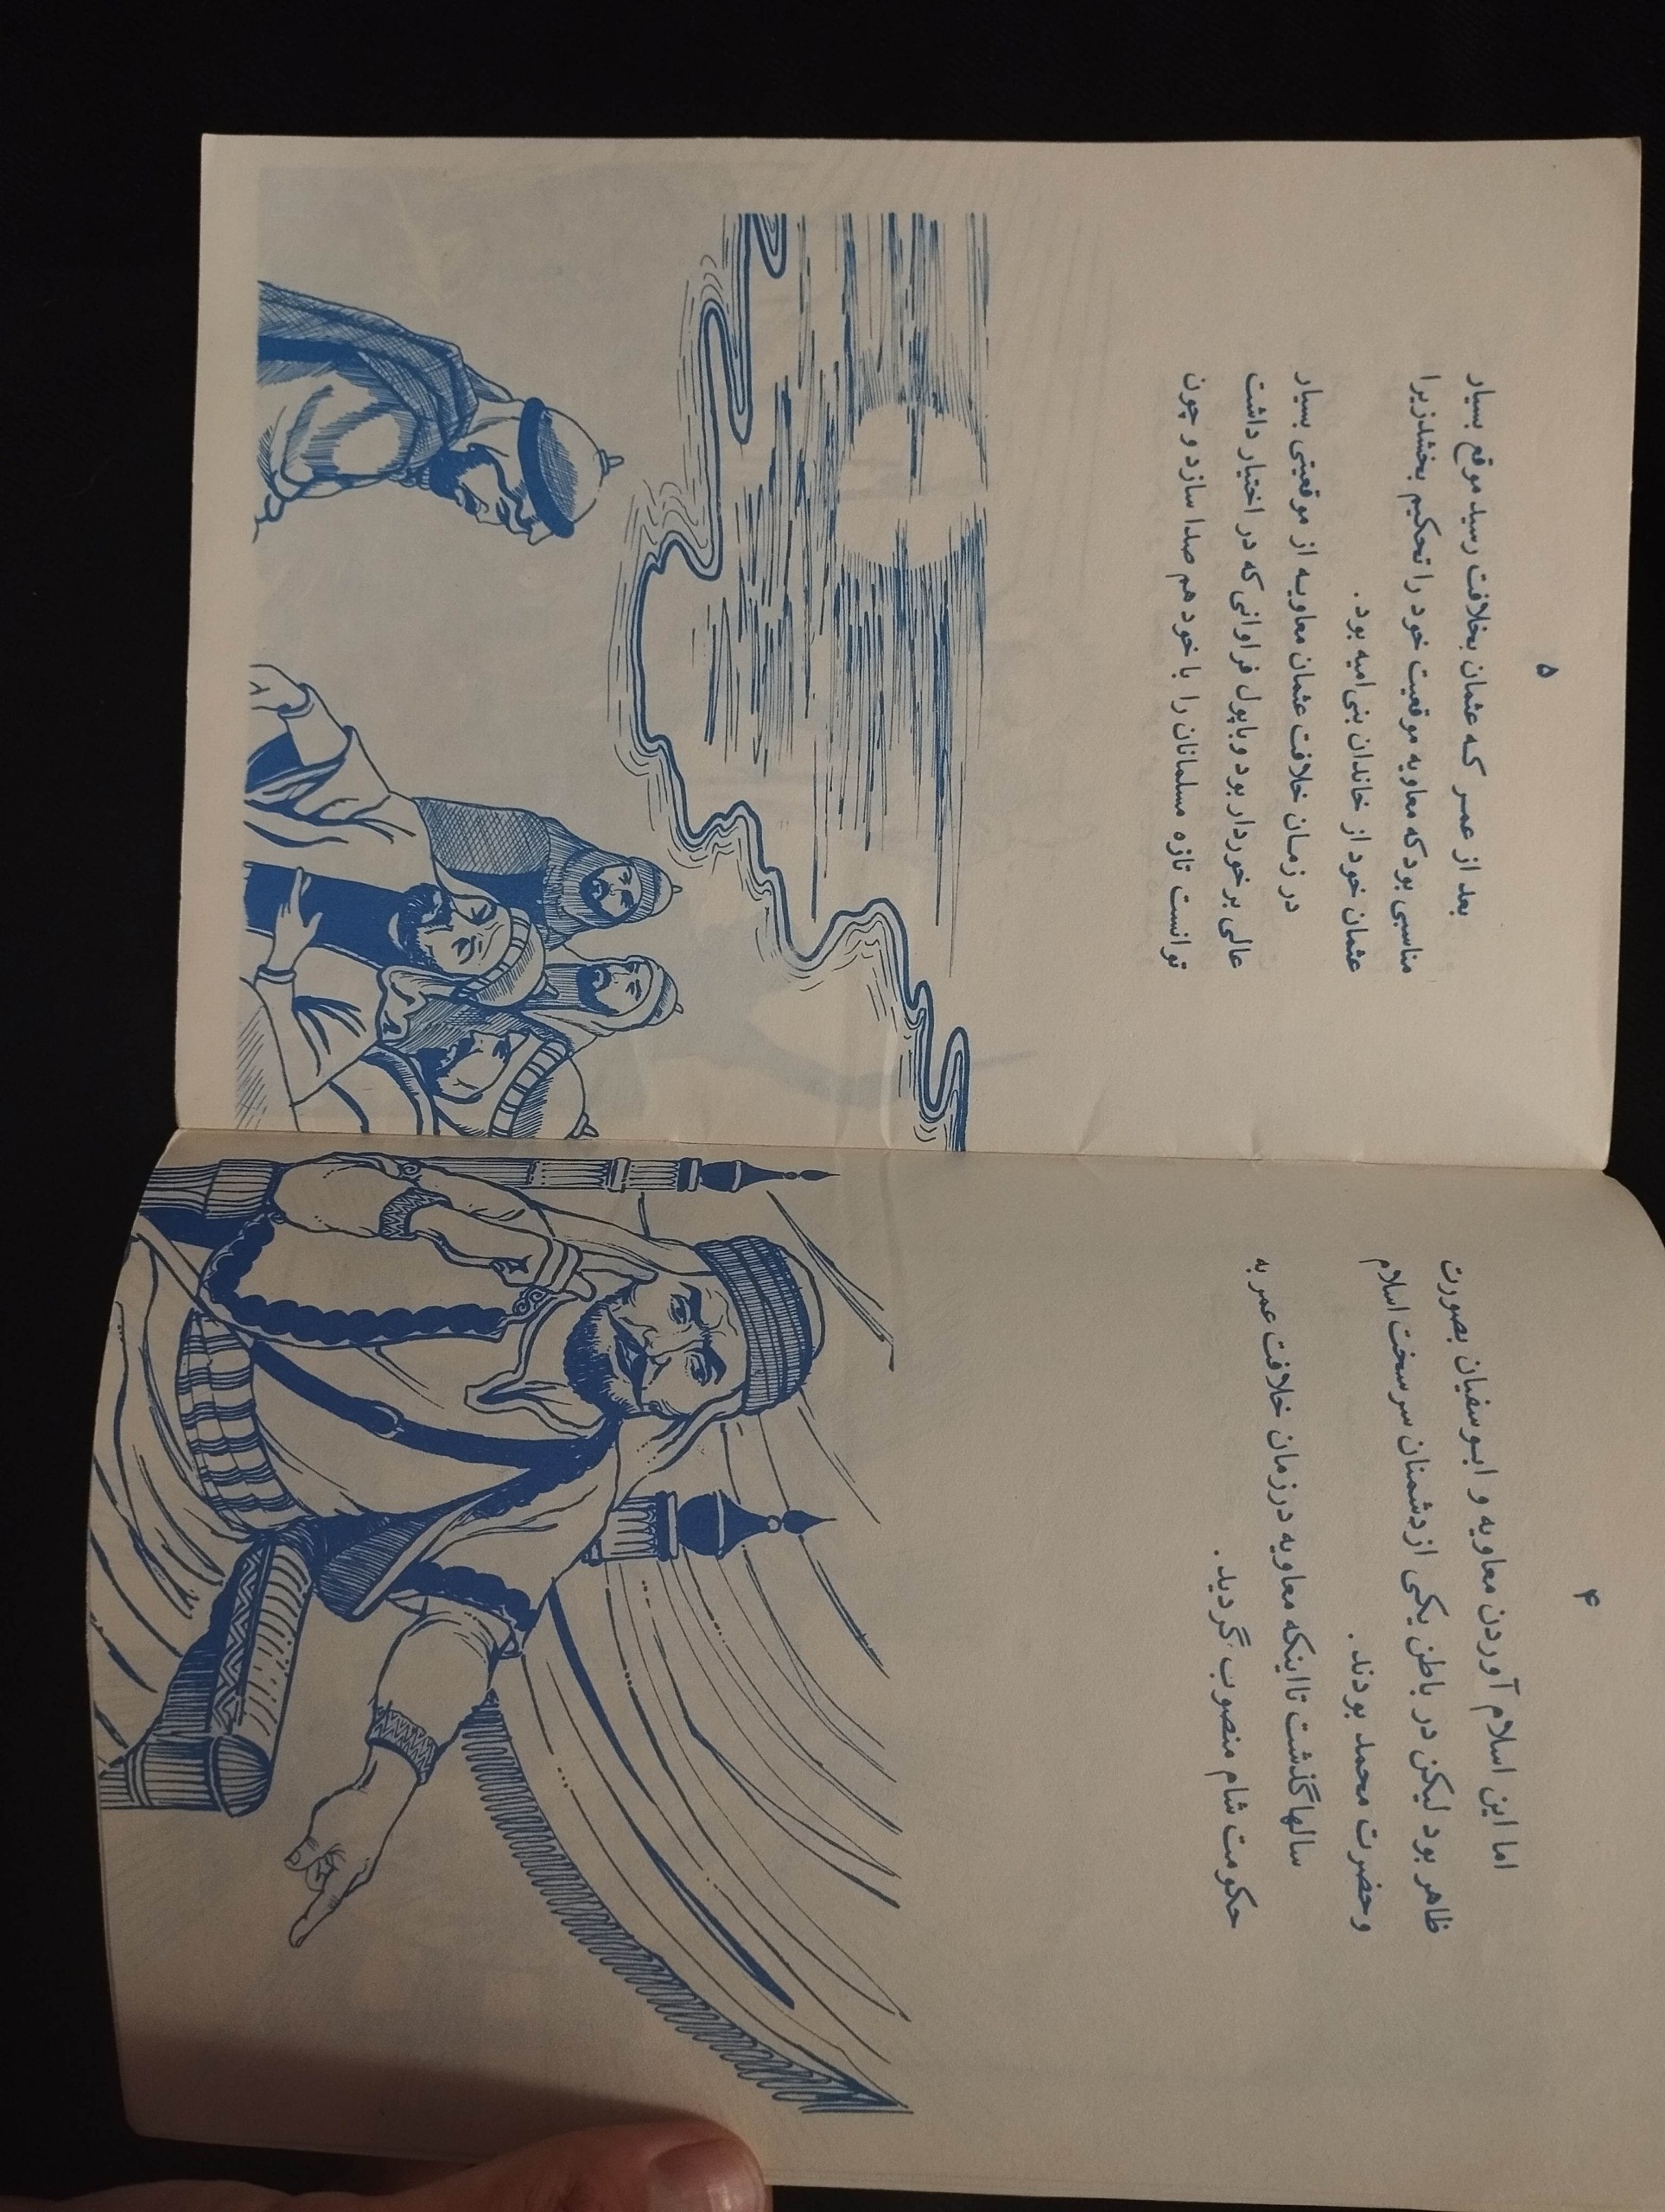 ۴
اما این اسلام آوردن معاویه و ابوسفیان بصورت
ظاهر بود لیکن در باطن یکی ازدشمنان سرسخت اسلام
وحضرت محمد بودند.
سالها گذشت تا اینکه معاویه درزمان خلافت عمر به
حکومت شام منصوب گردید.
۵
بعد از عمر که عثمان بخلافت رسید موقع بسیار
مناسبی بود که معاویه موقعیت خود را تحکیم بخشدزیرا
عثمان خود از خاندان بنی‌امیه بود.
در زمان خلافت عثمان معاویه از موقعیتی بسیار
عالی برخوردار بود وباپول فراوانی که در اختیار داشت
توانست تازه مسلمانان را با خود هم صدا سازد و چون